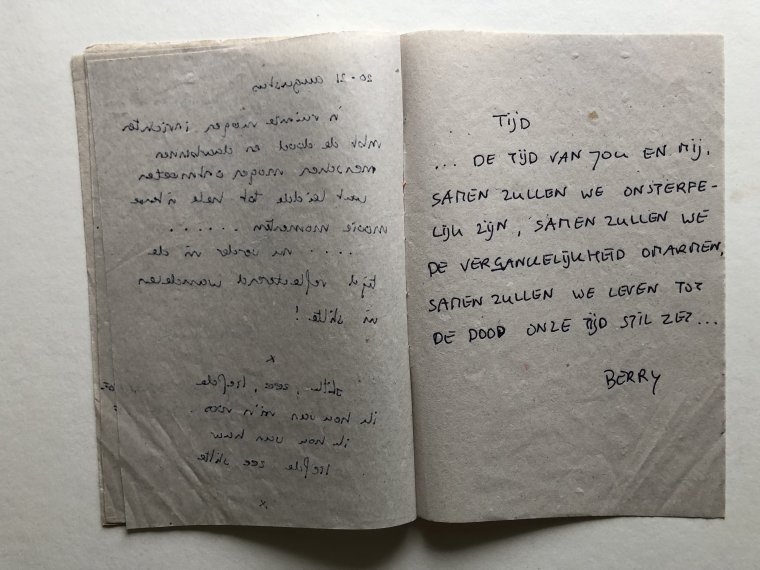 20-21 augustus
'n ruimte mogen inrichten
met de dood en daarbinnen
mensen mogen ontmoeten
wat leidde tot hele
mooie momenten .......
.... nu verder in de
tijd reflecterend wandelen
in stilte!
x
stilte, zee, liefde
ik hou van m'n
ik hou van haar
liefde zee stilte
x
TIJD
... DE TIJD VAN JOU EN MIJ,
SAMEN ZULLEN WE ONSTERFE-
LIJK ZIJN, SAMEN ZULLEN WE
DE VERGANKELIJKHEID OMARMEN,
SAMEN ZULLEN WE LEVEN TOT
DE DOOD ONZE TIJD STIL ZET...
BERRY